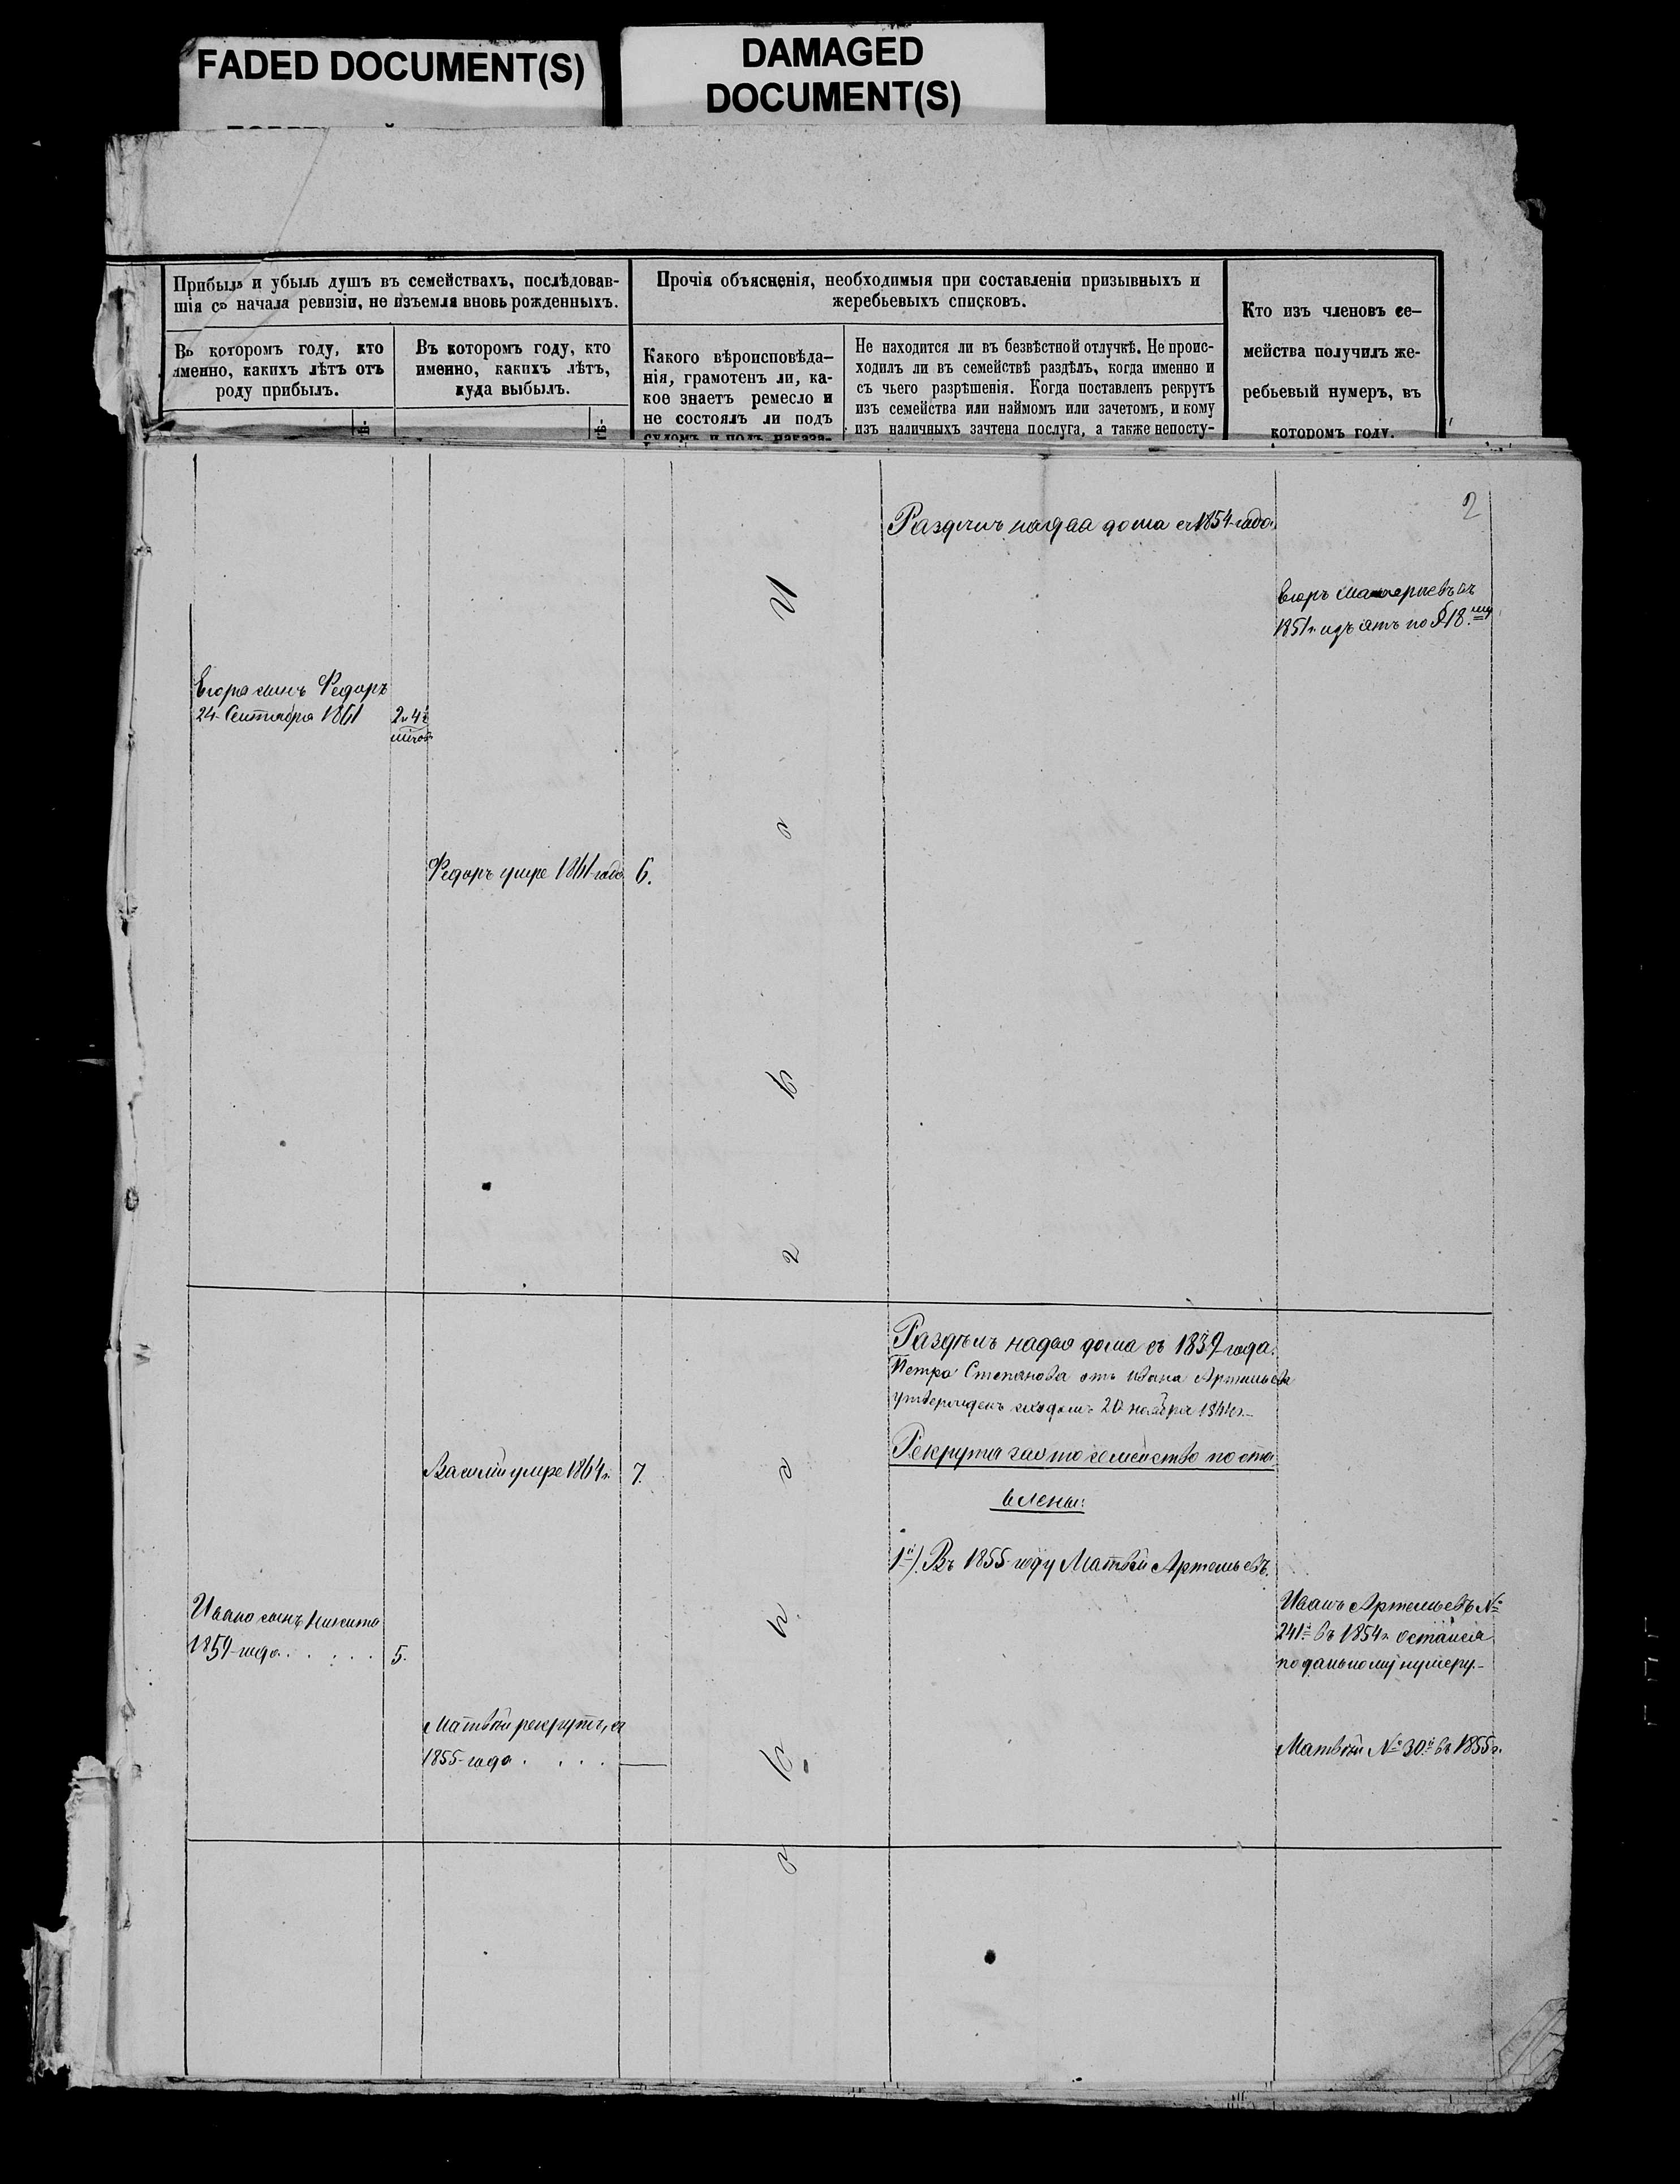 FADED DOCUMENT(S)
DAMAGED
DOCUMENT(S)
Прибыль и убыль душъ въ семействахъ, послѣдовав-
шія съ начала ревизіи, не изъемля вновь рожденныхъ.
Въ которомъ году, кто
именно, какихъ лѣтъ отъ
роду прибылъ.
Въ которомъ году, кто
именно, какихъ лѣтъ,
куда выбылъ.
Прочія объясненія, необходимыя при составленіи призывныхъ и
жеребьевыхъ списковъ.
Какого вѣроисповѣда-
нія, грамотенъ ли, ка-
кое знаетъ ремесло и
не состоялъ ли подъ
судомъ и подъ наказа-
Не находится ли въ безвѣстной отлучкѣ. Не проис-
ходилъ ли въ семействѣ раздѣлъ, когда именно и
съ чьего разрѣшенія. Когда поставленъ рекрутъ
изъ семейства или наймомъ или зачетомъ, и кому
изъ наличныхъ зачтена послуга, а также непосту-
Кто изъ членовъ се-
мейства получилъ же-
ребьевый нумеръ, въ
которомъ году.
2
Раздѣлъ надва дома съ 1854 года.
Егоръ въ
1851 г. изъятъ по § 18.му
Егора сынъ Федоръ
24 Сентября 1861
2 и 4
Федоръ умре 1861 года 6.
Раздѣлъ надва дома съ 1839 года.
Петра Степанова отъ Ивана Артемьева
утвержденъ 20 ноября 1844 г.
Рекруты за это семейство поста-
влены:
Василій умре 1864 г. 7.
1й) Въ 1855 году Матвѣй Артемьевъ.
Ивана сынъ Никита
1859 года . . . . . 5.
Иванъ Артемьевъ №
241й въ 1854 г. остался
по дальному нумеру.
Матвѣй рекрутъ, съ
1855 года . . . .
Матвѣй № 30й въ 1855 г.